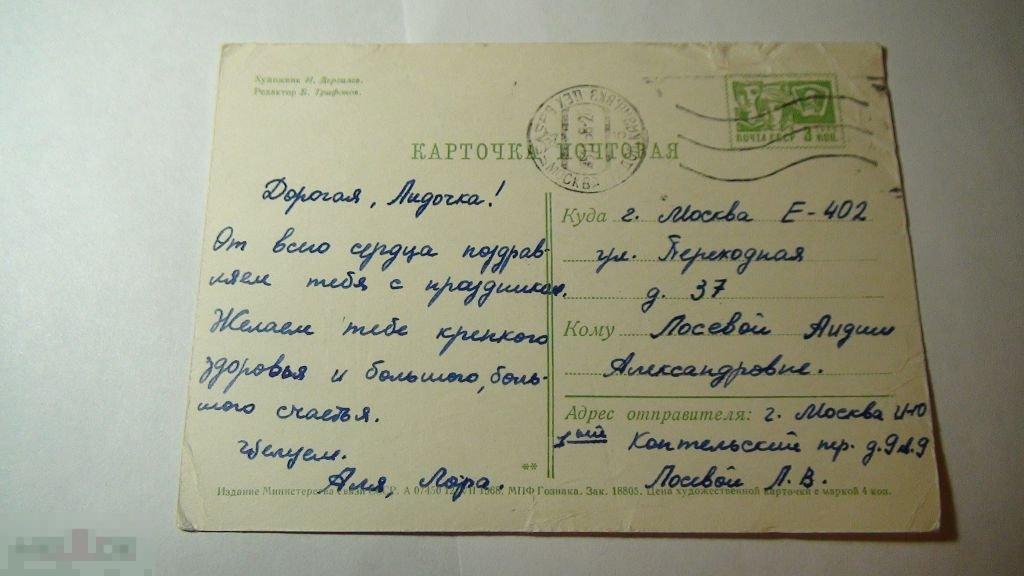 Художник И. Дергилев.
Редактор Б. Трифонов.
МОСКВА
ПОЧТА СССР
КАРТОЧКА ПОЧТОВАЯ
Дорогая, Лидочка!
От всего сердца поздрав-
ляем тебя с праздником.
Желаем тебе крепкого
здоровья и большого, боль-
шого счастья.
Целуем.
Аля, Лора.
Куда г. Москва Е-402
ул. Переходная
д. 37
Кому Лосевой Лидии
Александровне.
Адрес отправителя: г. Москва И-10
1ый Коптельский пер. д.9 к.9
Лосевой Л.В.
**
Издание Министерства связи СССР. А 07450 1968. МПФ Гознака. Зак. 18805. Цена художественной карточки с маркой 4 коп.